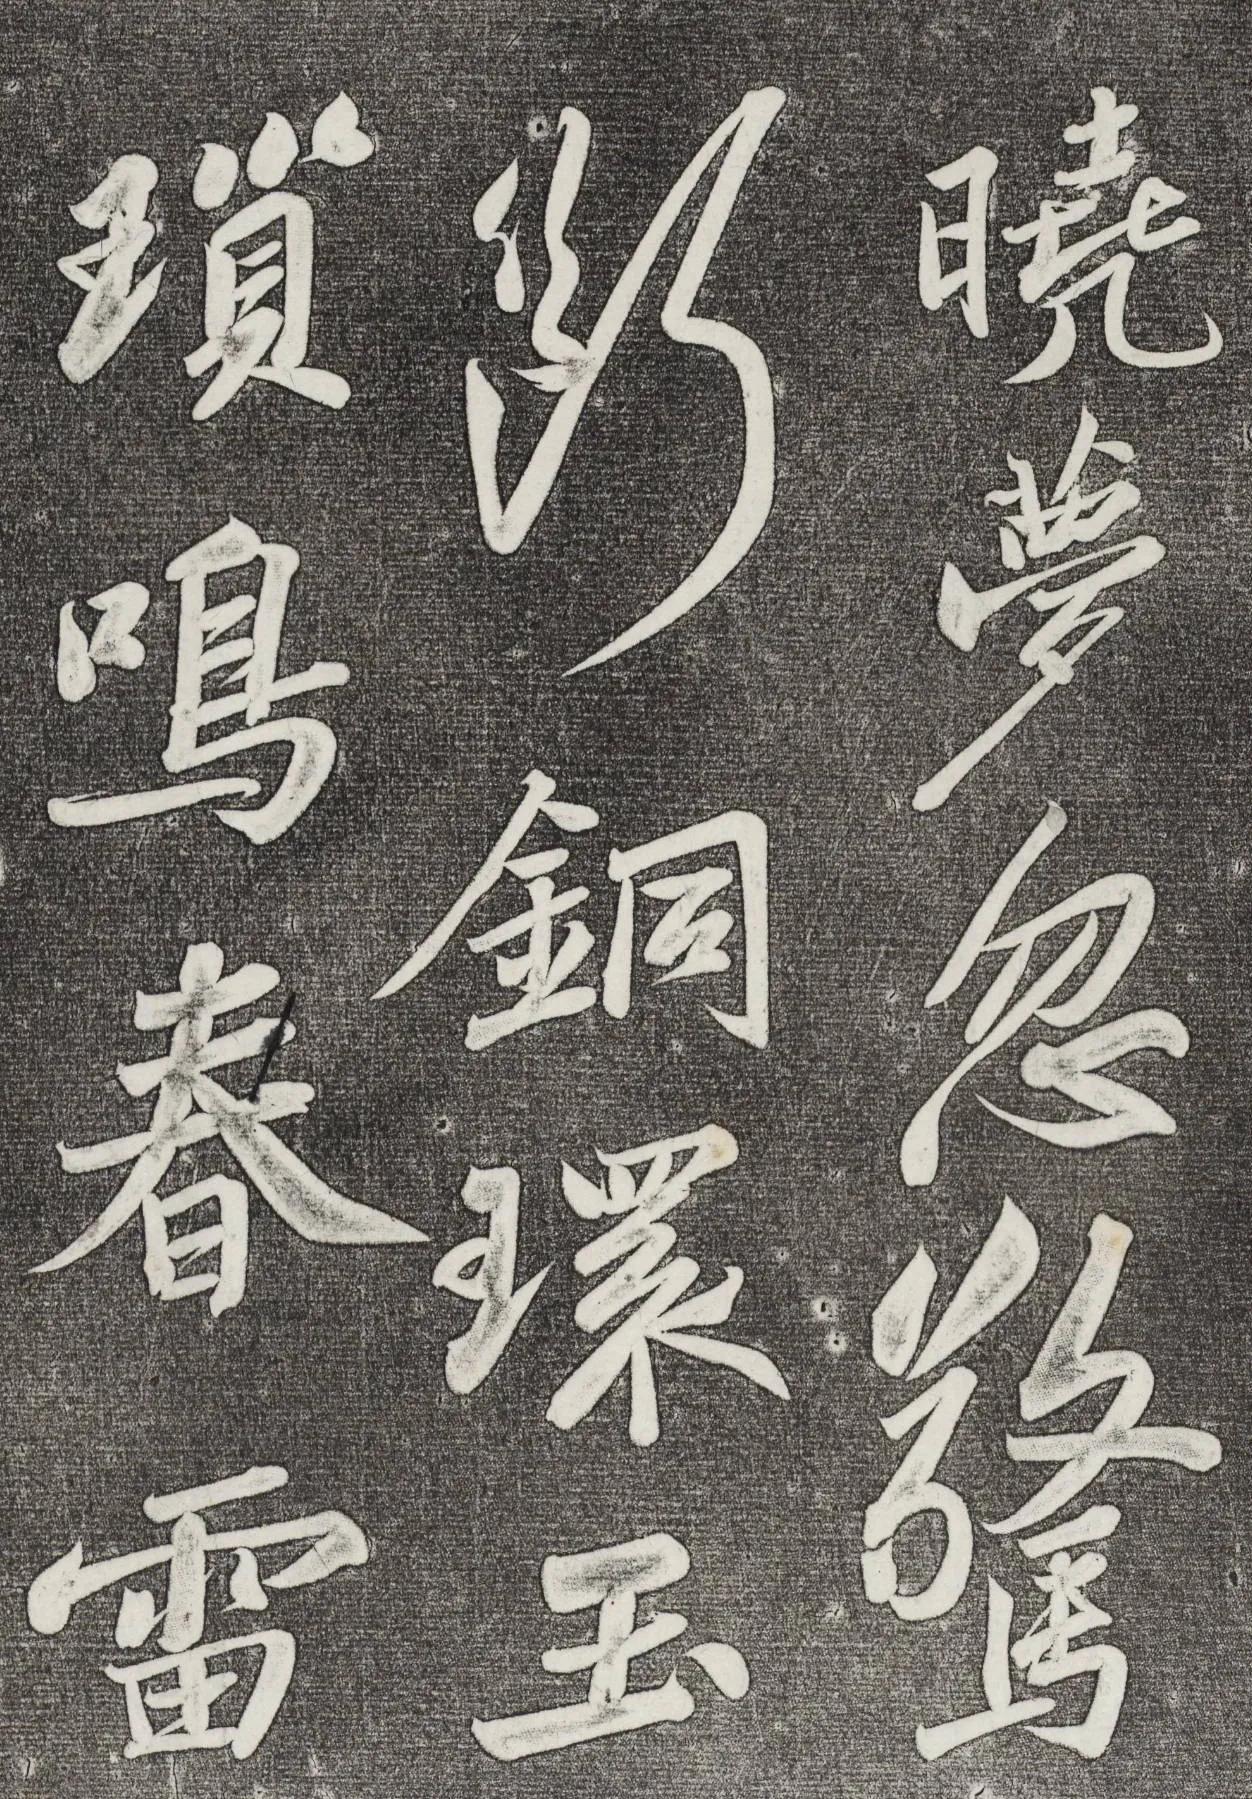 曉夢忽驚
斷銅環玉
瑣鳴春雷